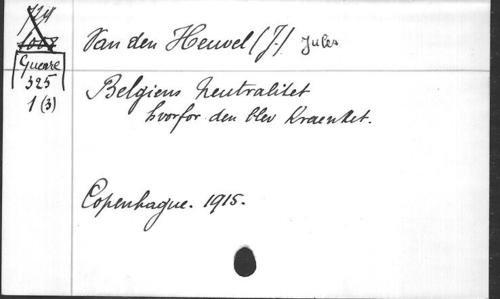 Van den Heuvel (J.) Jules
Guerre
325
1 (3)
Belgiens Neutralitet
hvorfor den blev Kraenket.
Copenhague. 1915.